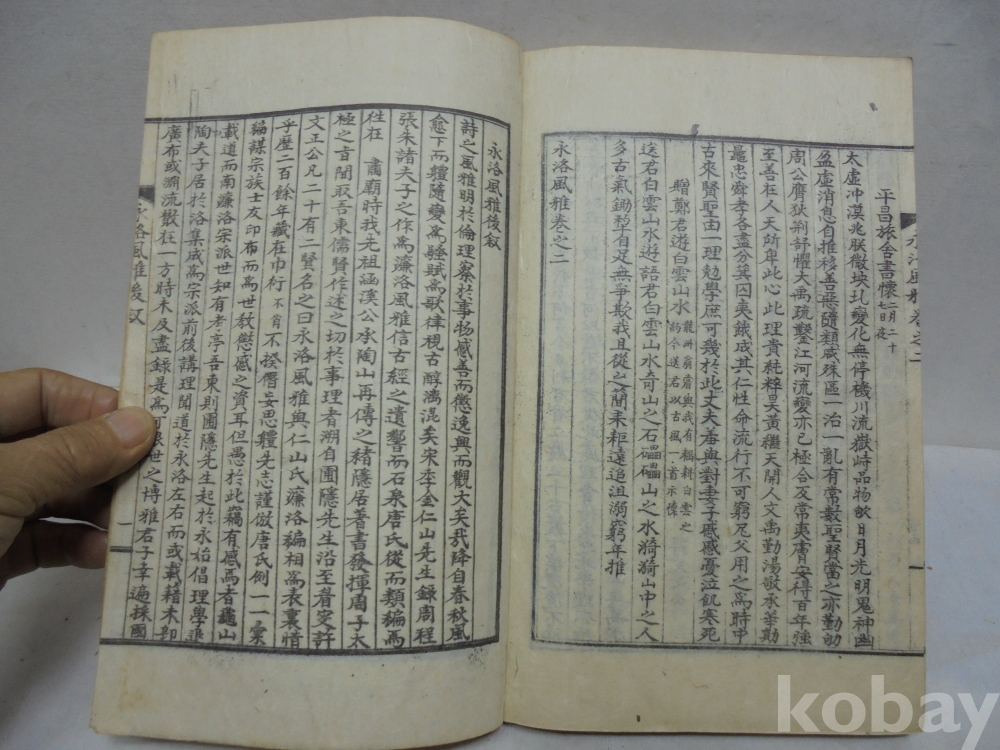 永洛風雅卷之二
平昌旅舍書懷 二月二十七日夜
太虛冲漠兆朕微坱圠變化無停機川流嶽峙品物
日月光明鬼神幽
盈虛消息自推移善惡隨類感殊區一治一亂有常數聖賢當之亦勤劬
周公膺狄荊舒懼大禹疏鑿江河流變亦已極合及常夷膚安得百年強
至善在人天所卑此心此理貴純粹昊黃繼天開人文禹勤湯敬承華勛
忠舜孝各盡分箕囚夷餓成其仁性命流行不可窮尼父用之爲時中
古來賢聖由一理勉學庶可幾於此丈夫
與對妻子戚戚憂泣飢寒死
贈鄭君遊白雲山水
龍洲翁嘗與我有耦耕白雲之
約今送君以古風一首示懷
送君白雲山水遊語君白雲山水奇山之石礧礧山之水漪漪山中之人
多古氣鋤犂自足無爭欺我且從之問耒耟遠追沮溺窮年推
永洛風雅卷之二
永洛風雅後叙
詩之風雅明於倫理察於事物感善而懲逸興而觀大矣哉降自春秋風
愈下而軆隨變爲騷賦爲歌律視古醇漓混矣宋季金仁山先生錄周程
張朱諸夫子之作爲濂洛風雅信古經之遺響而石泉唐氏從而類編焉
徃在 肅廟時我先祖涵漢公承陶山再傳之緖隱居著書發揮周子太
極之旨閒取吾東儒賢作述之切於事理者溯自圃隱先生沿至聾叟許
文正公凡二十有二賢名之曰永洛風雅與仁山氏濂洛編相爲表裏惜
乎歷二百餘年藏在巾衍不肖不揆僭妄思軆先志謹倣唐氏例一一彙
編謀宗族士友印布而爲世敎懲感之資耳但愚於此竊有感焉者龜山
載道而南濂洛宋派世知有考亭吾東則圃隱先生起於永始倡理學退
陶夫子居於洛集成爲宗派前後講理聞道於永洛左右而或載藉未卽
廣布或淵流散在一方時未及盡錄是爲可恨世之博雅君子幸遍採國
永洛風雅後叙
一
kobay